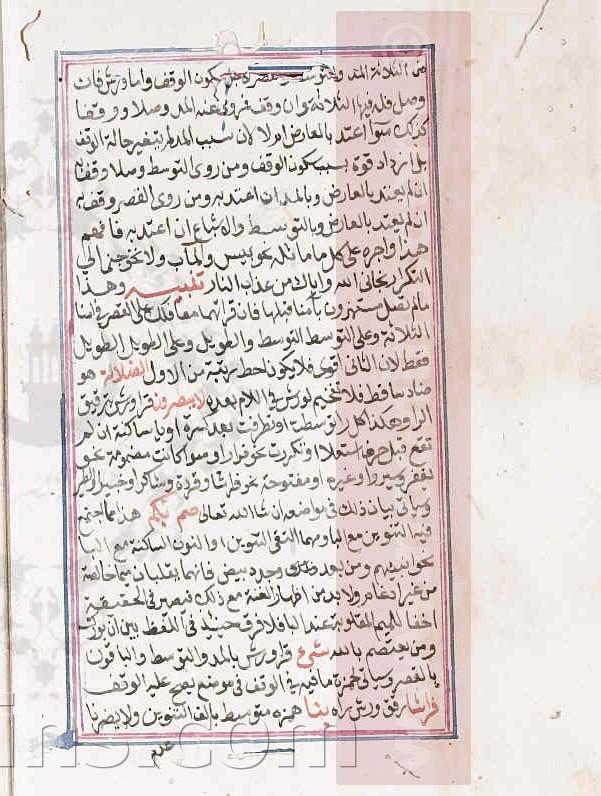 من الثلاثة المد والتوسط والقصر سكون الوقف واما ورش فان
وصل فله فيها الثلاثة وان وقف فمن روى عنه المد وصلا ووقف
كذلك سوا اعتد بالعارض ام لا لان سبب المد لم يتغير حالة الوقف
بل ازداد قوة بسبب سكون الوقف ومن روى التوسط وصلا وقف به
ان لم يعتد بالعارض وبالمد ان اعتد به ومن روى القصر وقف به
ان لم يعتد بالعارض وبالتوسط والاشباع ان اعتد به فافهم
هذا واجره على كل ما ماثله نحو يئس والمآب ولا تحوجني الى
التكرار نجاني الله واياك من عذاب النار تنبيه وهذا
ما لم تصل مستهزون بآمنا قبلها فان قراتها معا فلك على القصر في امنا
الثلاثة وعلى التوسط التوسط والطويل وعلى الطويل الطويل
فقط لان الثاني اقوى فلا يكون احط رتبة من الاول الضلالة هو
ضاد ساقط فلا تفخيم لورش في اللام بعده لا يبصرون قرا ورش بترقيق
الرا وهكذا كل را توسطت او تطرفت بعد كسرة او يا ساكنة ان لم
تقع قبل حرف استعلا او تكررت نحو فرارا وسوا كانت مضمومة نحو
يغفر وسيروا وغيره او مفتوحة نحو فراشا وقردة وشاكرا وخبير الطير
وسياتي بيان ذلك في مواضعه ان شا الله تعالى صم بكم هذا مما اجتمع
فيه التنوين مع الباء ومهما التقى التنوين او النون الساكنة مع البا
نحو انبئهم ومن بعد وجدد بيض فانهما يقلبان ميما خالصة
من غير ادغام ولابد من اظهار الغنة مع ذلك فيصير في الحقيقة
اخفا للميم المقلوبة عند الباء فلا فرق حينئذ في اللفظ بين ان بورك
ومن يعتصم بالله شيء قرا ورش بالمد والتوسط والباقون
بالقصر وسياتي لحمزة ما فيه في الوقف في موضع يصح عليه الوقف
فراشا رقق ورش راه بناء همزه متوسط بالف التنوين ولا يضرنا
عدم
ins.com